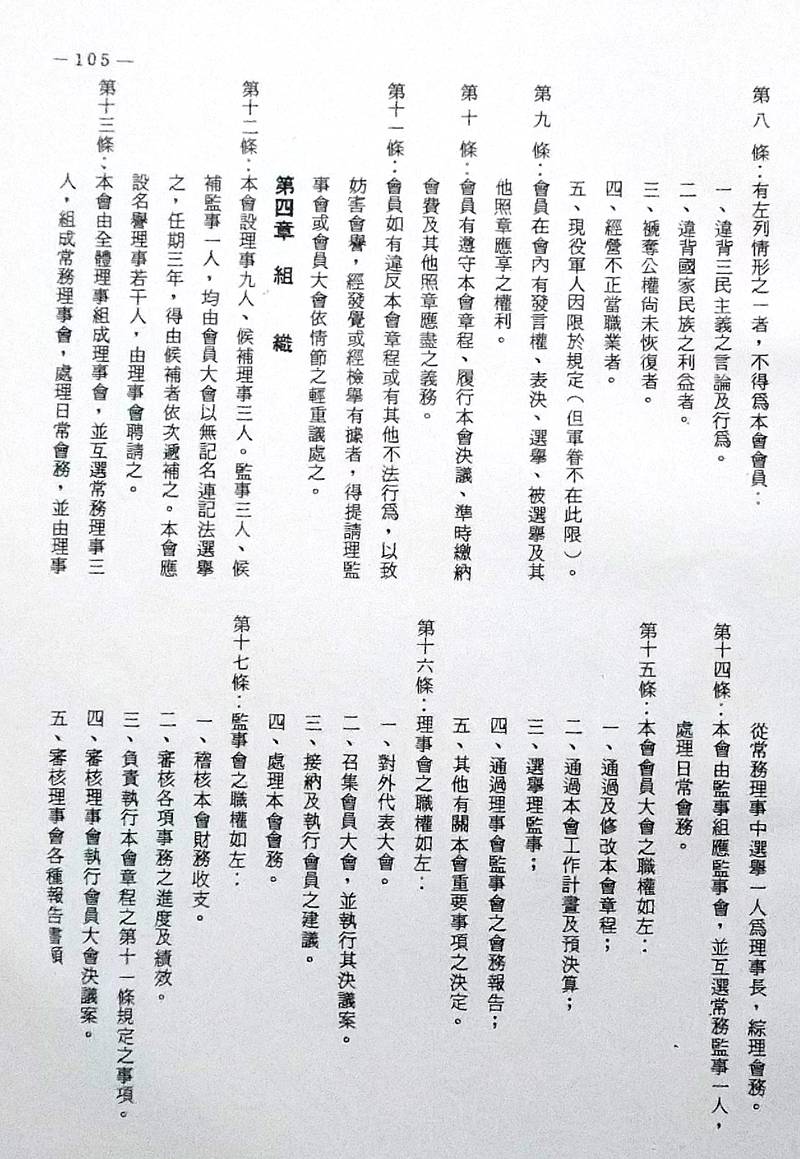 —105—
第八條：有左列情形之一者，不得為本會會員：
一、違背三民主義之言論及行為。
二、違背國家民族之利益者。
三、褫奪公權尚未恢復者。
四、經營不正當職業者。
五、現役軍人因限於規定（但軍眷不在此限）。
第九條：會員在會內有發言權、表決、選舉、被選舉及其
他照章應享之權利。
第十條：會員有遵守本會章程、履行本會決議、準時繳納
會費及其他照章應盡之義務。
第十一條：會員如有違反本會章程或有其他不法行為，以致
妨害會譽，經發覺或經檢舉有據者，得提請理監
事會或會員大會依情節之輕重議處之。
第四章 組 織
第十二條：本會設理事九人、候補理事三人。監事三人、候
補監事一人，均由會員大會以無記名連記法選舉
之，任期三年，得由候補者依次遞補之。本會應
設名譽理事若干人，由理事會聘請之。
第十三條：本會由全體理事組成理事會，並互選常務理事三
人，組成常務理事會，處理日常會務，並由理事
從常務理事中選舉一人為理事長，綜理會務。
第十四條：本會由監事組應監事會，並互選常務監事一人，
處理日常會務。
第十五條：本會會員大會之職權如左：
一、通過及修改本會章程；
二、通過本會工作計畫及預決算；
三、選舉理監事；
四、通過理事會監事會之會務報告；
五、其他有關本會重要事項之決定。
第十六條：理事會之職權如左：
一、對外代表大會。
二、召集會員大會，並執行其決議案。
三、接納及執行會員之建議。
四、處理本會會務。
第十七條：監事會之職權如左：
一、稽核本會財務收支。
二、審核各項事務之進度及績效。
三、負責執行本會章程之第十一條規定之事項。
四、審核理事會執行會員大會決議案。
五、審核理事會各種報告書類